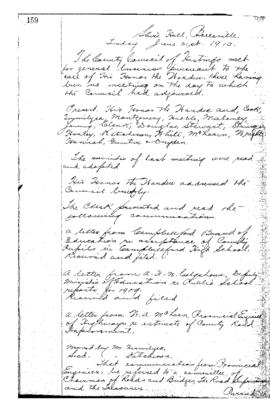 159
Shire Hall, Belleville.
Friday June 21st 1910.
The County Council of Hastings met
for general business pursuant to the
call of His Honor the Warden, there having
been no meeting on the day to which
the Council had adjourned.
Present. His Honor the Warden and, Cook,
Vermilyea, Montgomery, Maloney,
Young, Clark, Douglas, Stewart,
Ketcheson, White, McLaren, Wright,
Hannah, Gunter
The minutes of last meeting were read
and adopted
His Honor the Warden addressed the
Council
The Clerk presented and read the
following communications
a letter from Campbellford Board of
Education re acceptance of County
Pupils in Campbellford High School.
Received and filed
A letter from A.H.U. Colquhoun, Deputy
Minister of Education re Public School
reports for 1909.
Received and filed
a letter from W.A. McLean Provincial Engineer
of Highways re estimate of County Road
Improvement.
Moved by Mr. Vermilyea,
Secd. " Ketcheson.
That communication from Provincial
Engineer, be referred to a committee of
Chairman of Roads and Bridges, the Road
and the Treasurer.